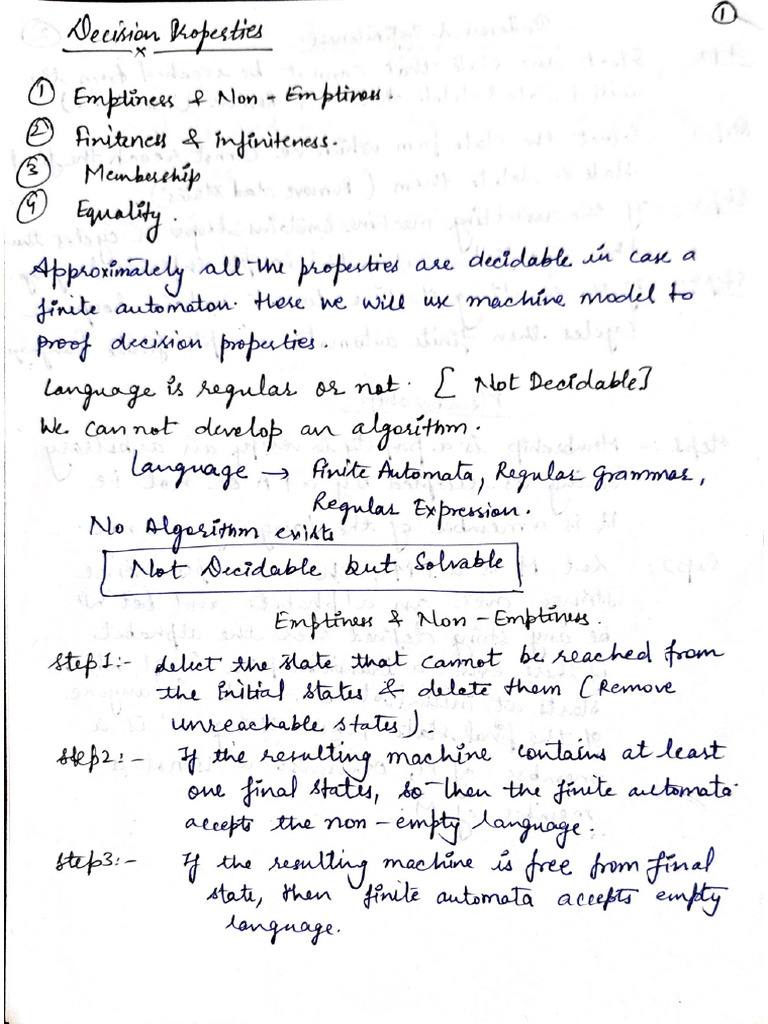 ①
Decision Properties
x
① Emptiness & Non-Emptiness.
② Finiteness & infiniteness.
③ Membership
④ Equality.
Approximately all the properties are decidable in case a
finite automaton. Here we will use machine model to
proof decision properties.
Language is regular or not. [Not Decidable]
We can not develop an algorithm.
Language → Finite Automata, Regular Grammar,
Regular Expression.
No Algorithm exists
Not Decidable but Solvable
Emptiness & Non-Emptiness.
Step1:- delect the state that cannot be reached from
the Initial states & delete them (Remove
unreachable states).
Step2:- If the resulting machine contains at least
one final states, so then the finite automata
accepts the non-empty language.
Step3:- If the resulting machine is free from final
state, then finite automata accepts empty
language.